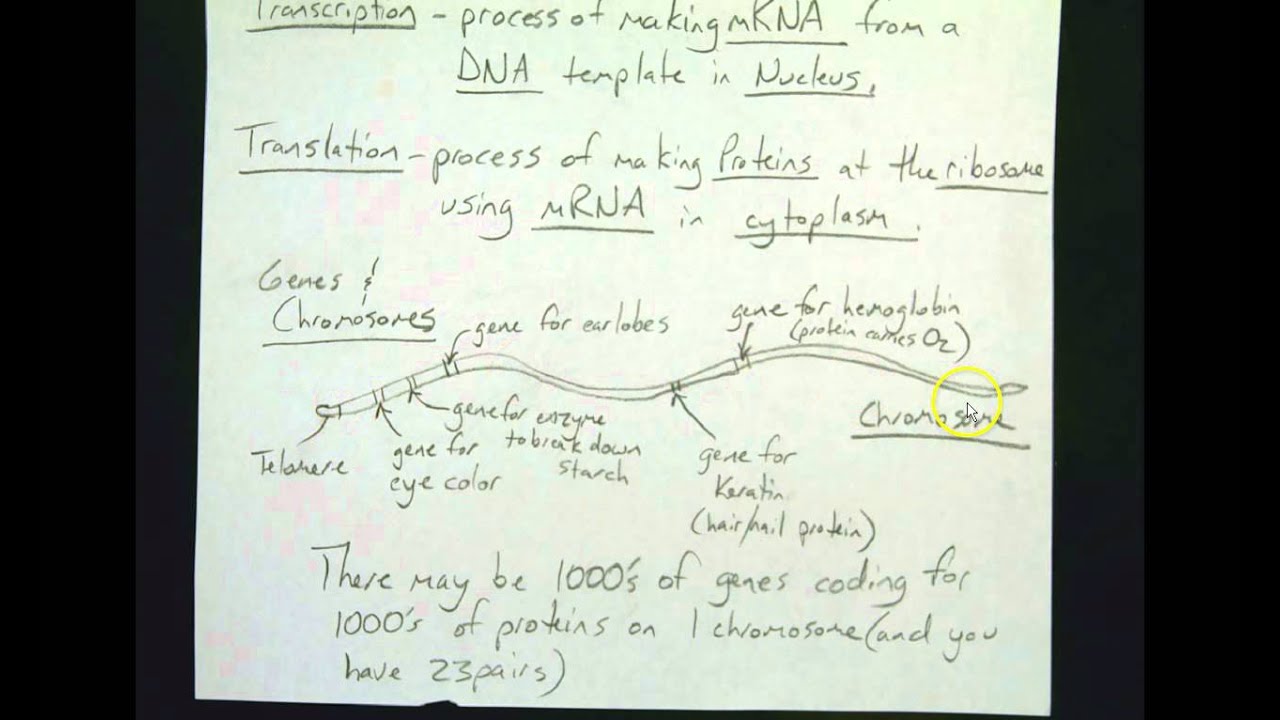 Transcription - process of making mRNA from a
DNA template in Nucleus.
Translation - process of making Proteins at the ribosome
using mRNA in cytoplasm.
Genes &
Chromosomes
gene for earlobes
gene for hemoglobin
(protein carries O2)
Chromosome
Telomere
gene for
eye color
gene for enzyme
to break down
starch
gene for
Keratin
(hair/nail protein)
There may be 1000's of genes coding for
1000's of proteins on 1 chromosome (and you
have 23 pairs)